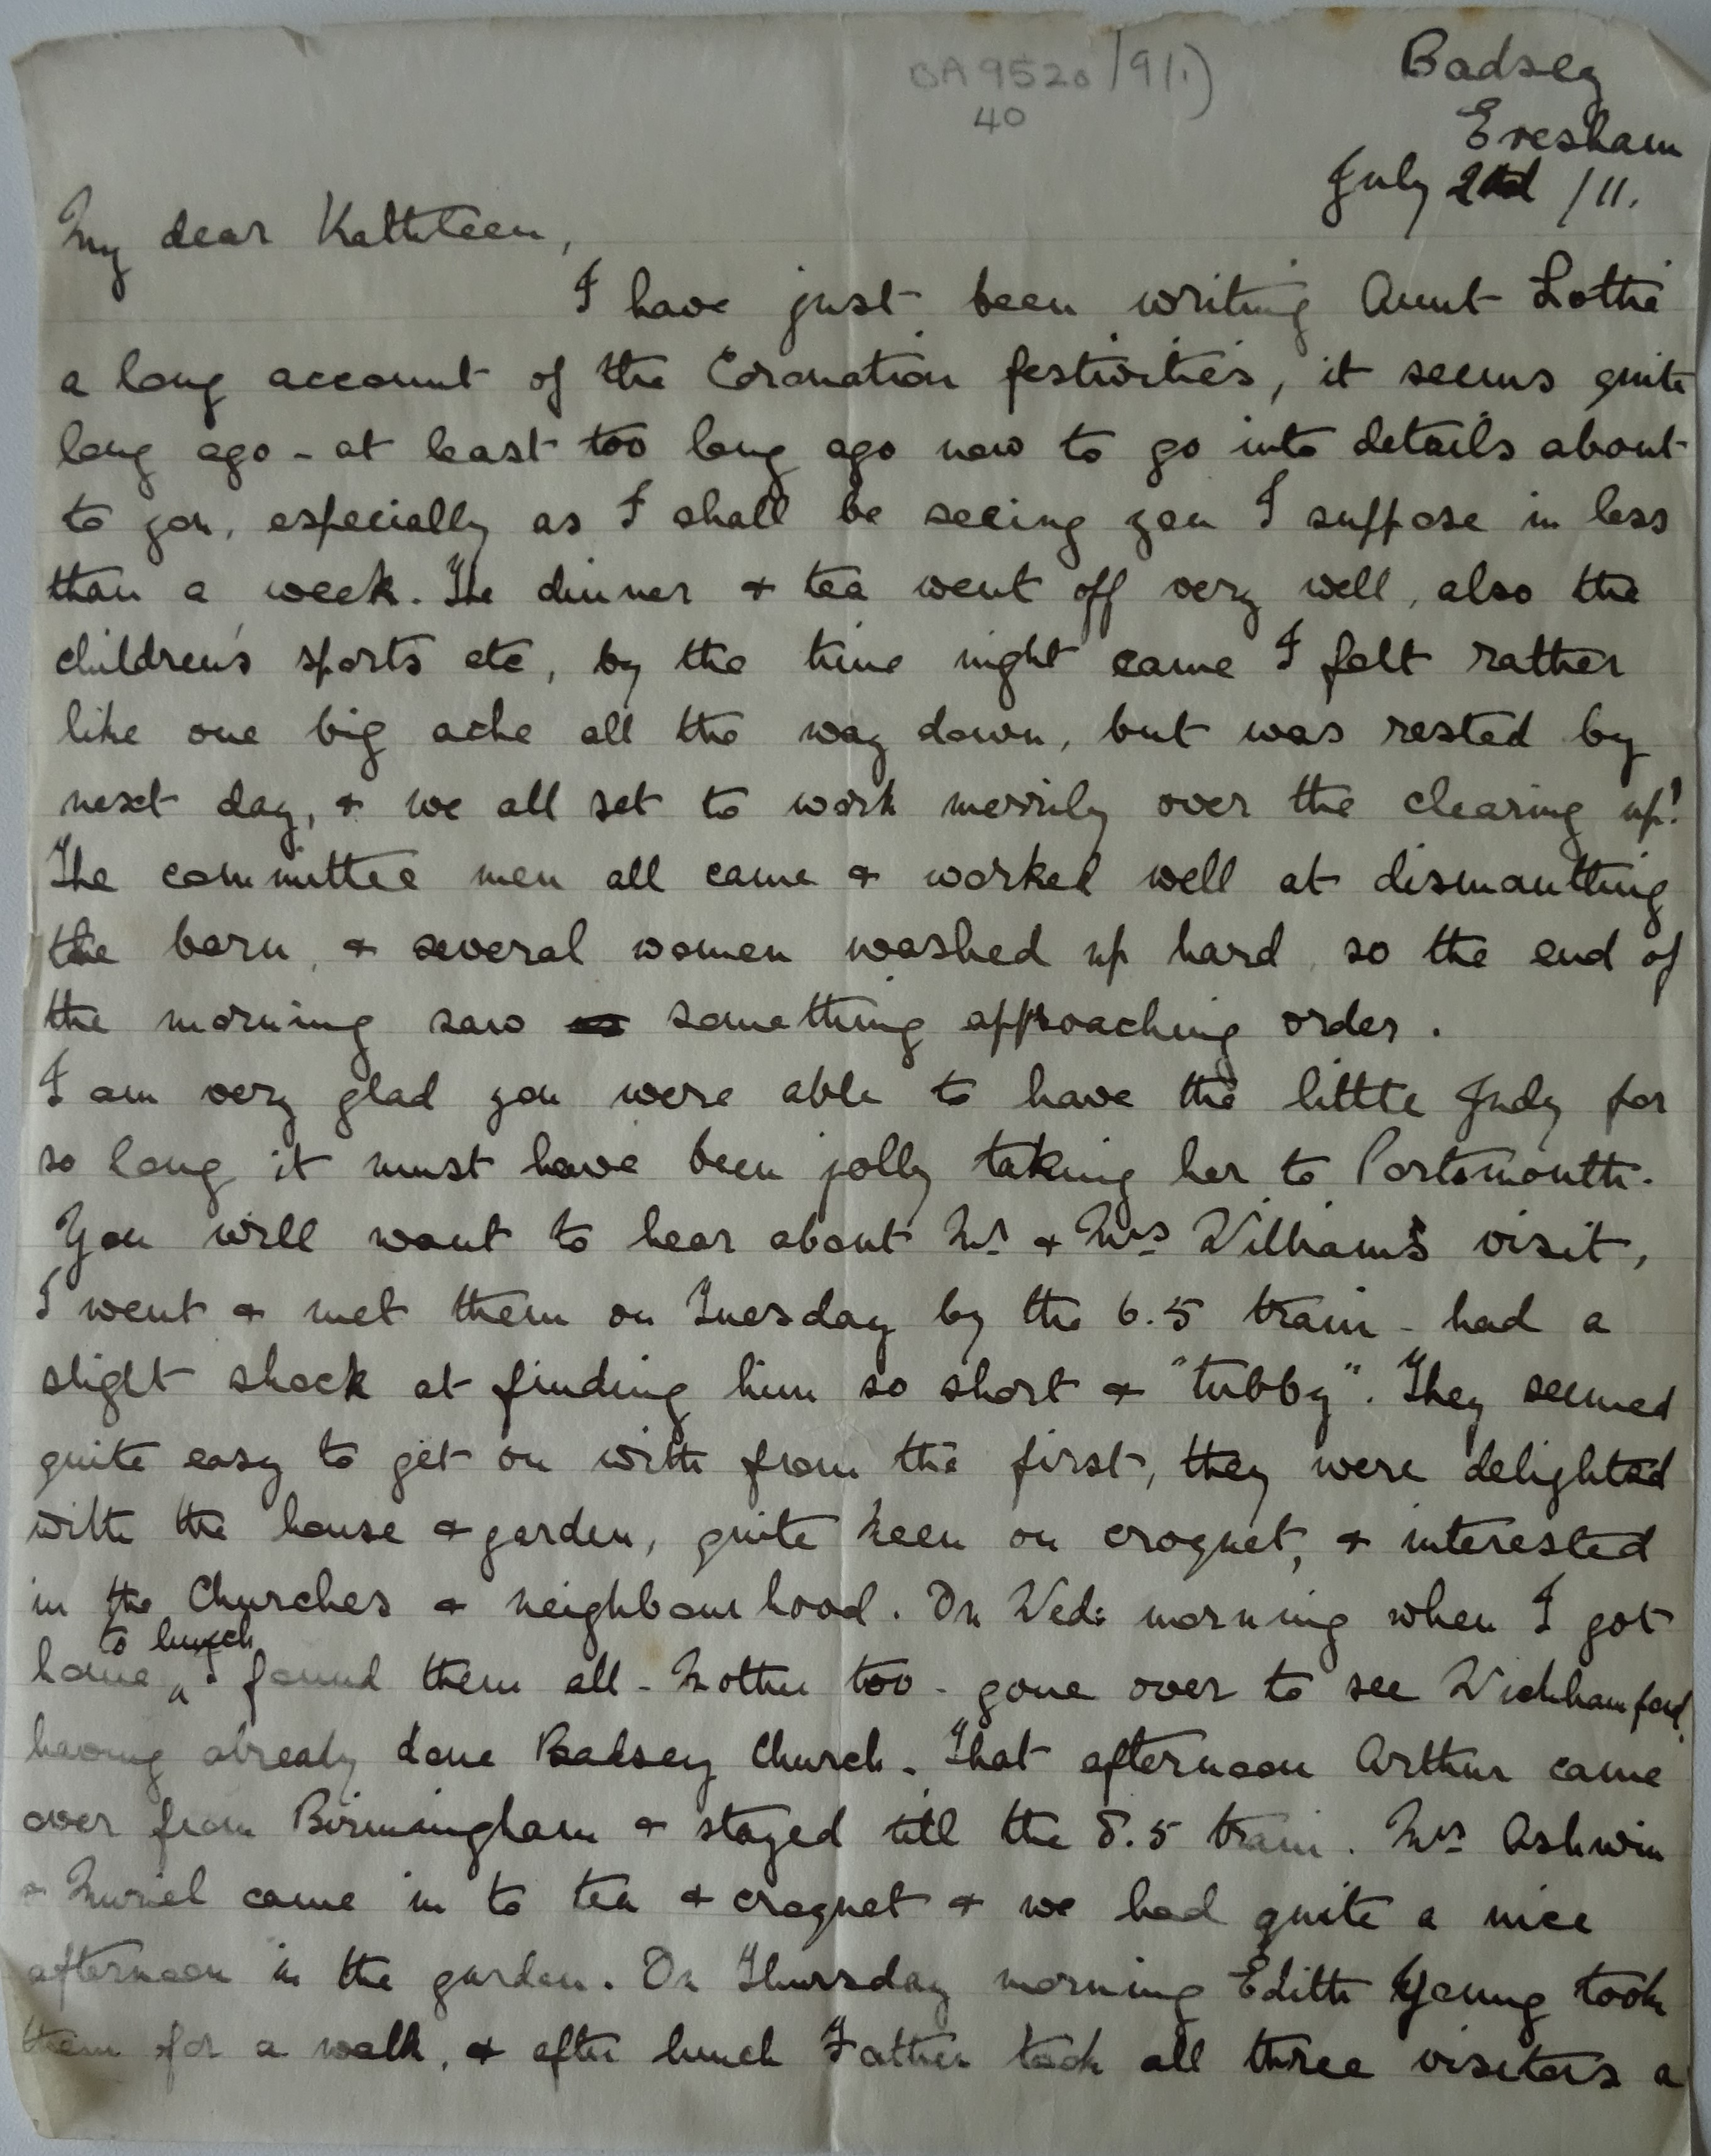 BA 9520/9(1)
40
Badsey
Evesham
July 2nd /11.
My dear Kathleen,
I have just been writing Aunt Lottie
a long account of the Coronation festivities, it seems quite
long ago - at least too long ago now to go into details about
to you, especially as I shall be seeing you I suppose in less
than a week. The dinner & tea went off very well, also the
children's sports etc, by the time night came I felt rather
like one big ache all the way down, but was rested by
next day, & we all set to work merrily over the clearing up!
The committee men all came & worked well at dismantling
the barn, & several women washed up hard, so the end of
the morning saw something approaching order.
I am very glad you were able to have the little Judy for
so long it must have been jolly taking her to Portsmouth.
You will want to hear about Mr & Mrs Williams visit,
I went & met them on Tuesday by the 6.5 train - had a
slight shock at finding him so short & "tubby". They seemed
quite easy to get on with from the first, they were delighted
with the house & garden, quite keen on croquet, & interested
in the Churches & neighbourhood. On Wed: morning when I got
home to lunch I found them all - Mother too - gone over to see Wickhamford,
having already done Badsey Church. That afternoon Arthur came
over from Birmingham & stayed till the 8.5 train. Mrs Ashwin
& Muriel came in to tea & croquet & we had quite a nice
afternoon in the garden. On Thursday morning Edith Young took
them for a walk, & after lunch Father took all three visitors a